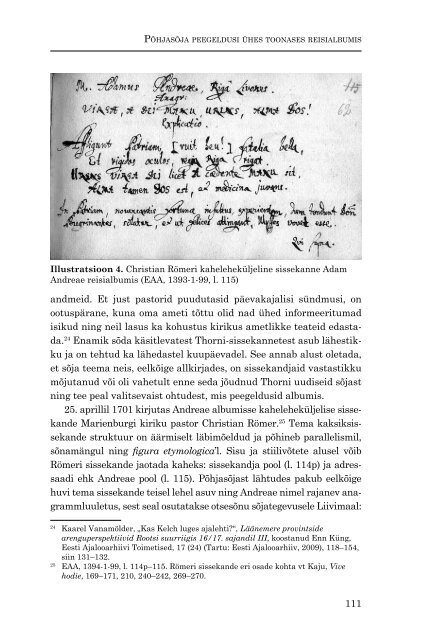 PÕHJASÕJA PEEGELDUSI ÜHES TOONASES REISIALBUMIS
M. Adamus Andreae, Rigâ Livonus.
115
Anagr:
VIRGA, A DEI MANU URENS, ALMA DOS!
62
Explicatio.
Affligunt Patriam, [ruit heu!] fatalia bella,
Et rigidos oculos, Riga rigat.
URENS VIRGA DEI licet à MANU sit,
ALMA tamen DOS est, medicina juvans.
Patriam,
Illustratsioon 4. Christian Römeri kaheleheküljeline sissekanne Adam
Andreae reisialbumis (EAA, 1393-1-99, l. 115)
andmeid. Et just pastorid puudutasid päevakajalisi sündmusi, on
ootuspärane, kuna oma ameti tõttu olid nad ühed informeeritumad
isikud ning neil lasus ka kohustus kirikus ametlikke teateid edasta-
da.24 Enamik sõda käsitlevatest Thorni-sissekannetest asub lähestik-
ku ja on tehtud ka lähedastel kuupäevadel. See annab alust oletada,
et sõja teema neis, eelkõige allkirjades, on sissekandjaid vastastikku
mõjutanud või oli vahetult enne seda jõudnud Thorni uudiseid sõjast
ning tee peal valitsevaist ohtudest, mis peegeldusid albumis.
25. aprillil 1701 kirjutas Andreae albumisse kaheleheküljelise sisse-
kande Marienburgi kiriku pastor Christian Römer.25 Tema kaksiksis-
sekande struktuur on äärmiselt läbimõeldud ja põhineb parallelismil,
sõnamängul ning figura etymologica'l. Sisu ja stiilivõtete alusel võib
Römeri sissekande jaotada kaheks: sissekandja pool (l. 114p) ja adres-
saadi ehk Andreae pool (l. 115). Põhjasõjast lähtudes pakub eelkõige
huvi tema sissekande teisel lehel asuv ning Andreae nimel rajanev ana-
grammluuletus, sest seal osutatakse otsesõnu sõjategevusele Liivimaal:
24 Kaarel Vanamölder, „Kas Kelch luges ajalehti?“, Läänemere provintside
arenguperspektiivid Rootsi suurriigis 16/17. sajandil III, koostanud Enn Küng,
Eesti Ajalooarhiivi Toimetised, 17 (24) (Tartu: Eesti Ajalooarhiiv, 2009), 118–154,
siin 131–132.
25 EAA, 1394-1-99, l. 114p–115. Römeri sissekande eri osade kohta vt Kaju, Vive
hodie, 169–171, 210, 240–242, 269–270.
111